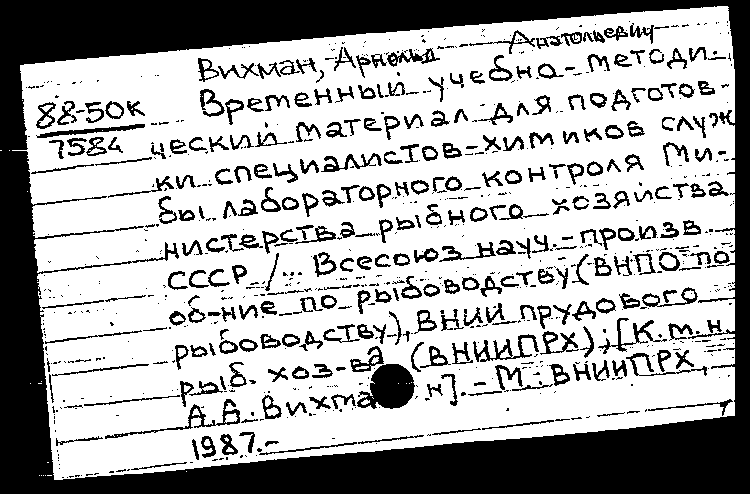 Вихман, Арнольд Анатольевич
88-50к Временный учебно-методи-
7584 ческий материал для подготов-
ки специалистов-химиков служ
бы лабораторного контроля Ми-
нистерства рыбного хозяйства
СССР /... Всесоюз науч.-произв.
об-ние по рыбоводству (ВНПО по
рыбоводству), ВНИИ прудового
рыб. хоз-ва (ВНИИПРХ); [К.т.н.
А.А. Вихма н]. - М.: ВНИИПРХ,
1987.-